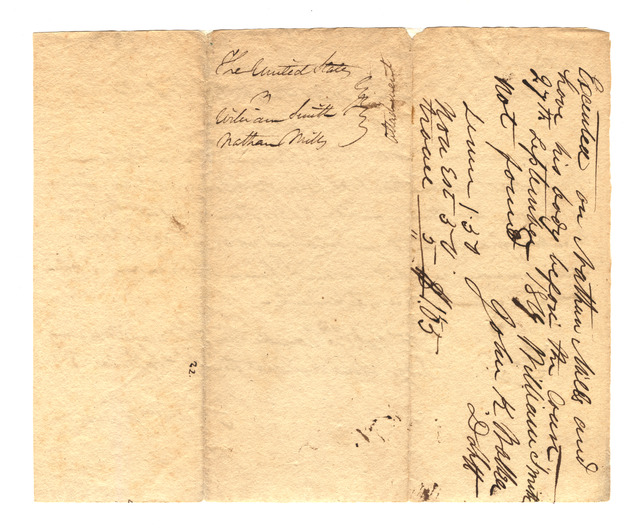 The United States
v
William Smith
Nathan Mills
Executed on Nathan Mills and
have his body before the Court
27th September 1819 William Smith
not found
John K
Serv 1.30
Non Est 30
5
$1.65
22.